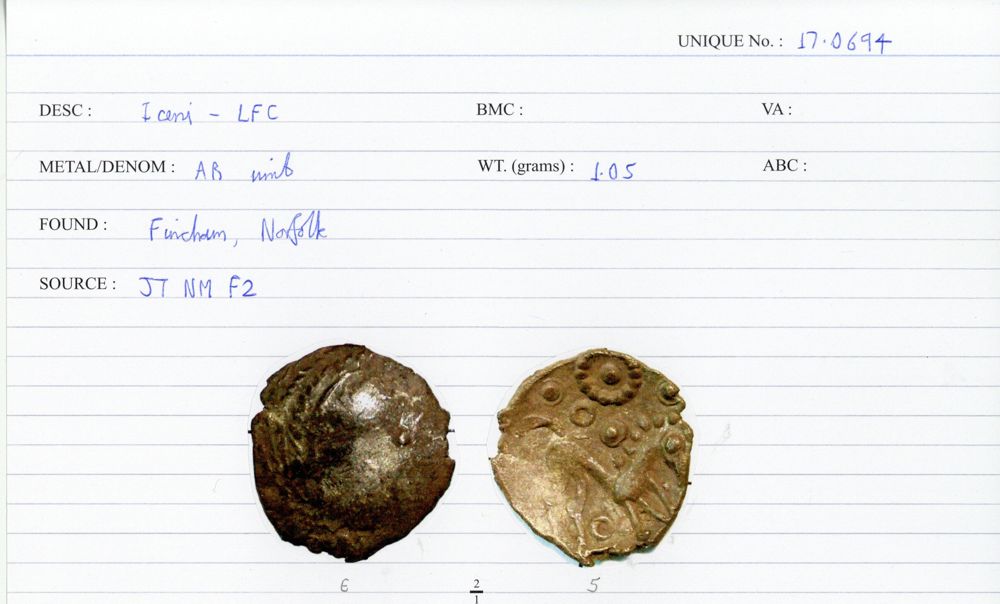 UNIQUE No. : 17.0694
DESC : Iceni - LFC BMC : VA :
METAL/DENOM : AR unit WT. (grams) : 1.05 ABC :
FOUND : Fincham, Norfolk
SOURCE : JT NM F2
6 2/1 5